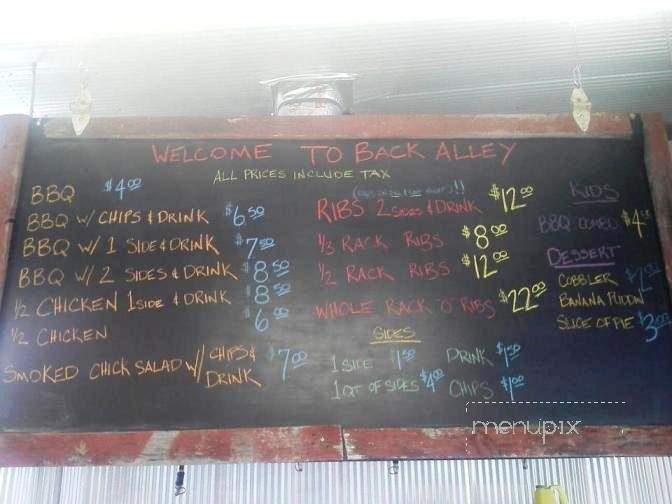 WELCOME TO BACK ALLEY
ALL PRICES INCLUDE TAX
BBQ $4.00
BBQ W/ CHIPS & DRINK $6.50
BBQ W/ 1 SIDE & DRINK $7.50
BBQ W/ 2 SIDES & DRINK $8.50
1/2 CHICKEN 1 SIDE & DRINK $8.50
1/2 CHICKEN $6.00
SMOKED CHICK SALAD W/ CHIPS & DRINK $7.00
RIBS 2 SIDES & DRINK $12.00
1/3 RACK RIBS $8.00
1/2 RACK RIBS $12.00
WHOLE RACK O' RIBS $22.00
SIDES
1 SIDE $1.50
DRINK $1.50
1 QT OF SIDES $4.00
CHIPS $1.00
KIDS
BBQ COMBO $4
DESSERT
COBBLER
BANANA PUDDIN
SLICE OF PIE $3.00
menupix